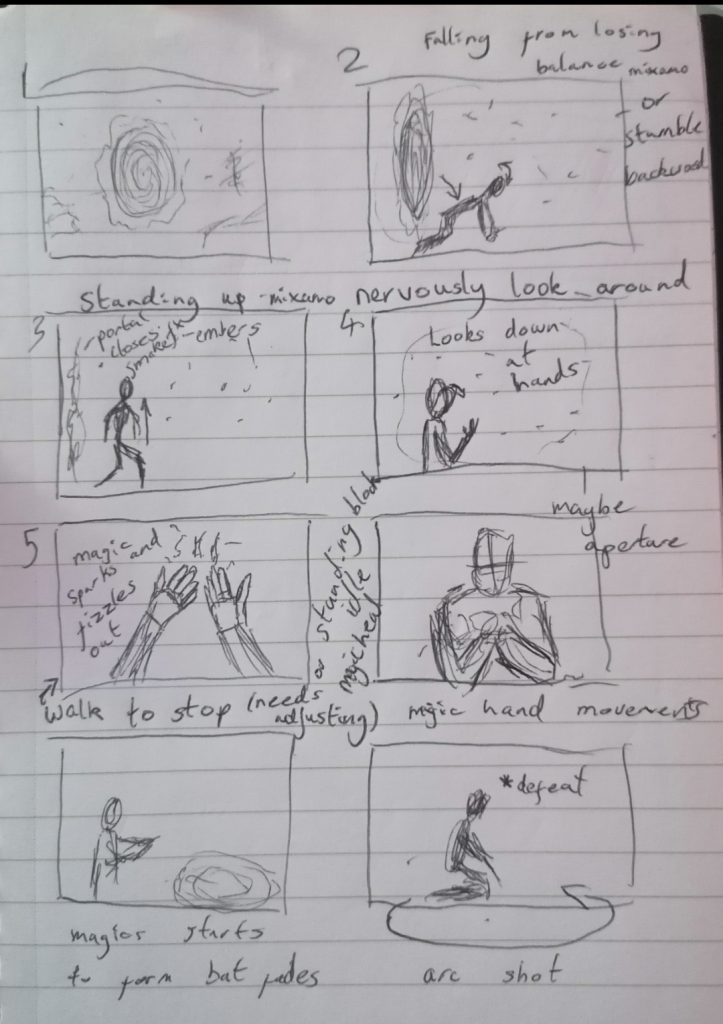 1
2
Falling from losing
balance mixamo
or
stumble
backward
Standing up-mixamo nervously look around
3
portal
closes fx
smoke? -embers
4
Looks down
at
hands
maybe
aperture
5
magic and
sparks
fizzles
out
or standing block
idle
magic heal
Walk to stop (needs
adjusting)
mgic hand movements
*defeat
magics starts
to form bat fades
arc shot